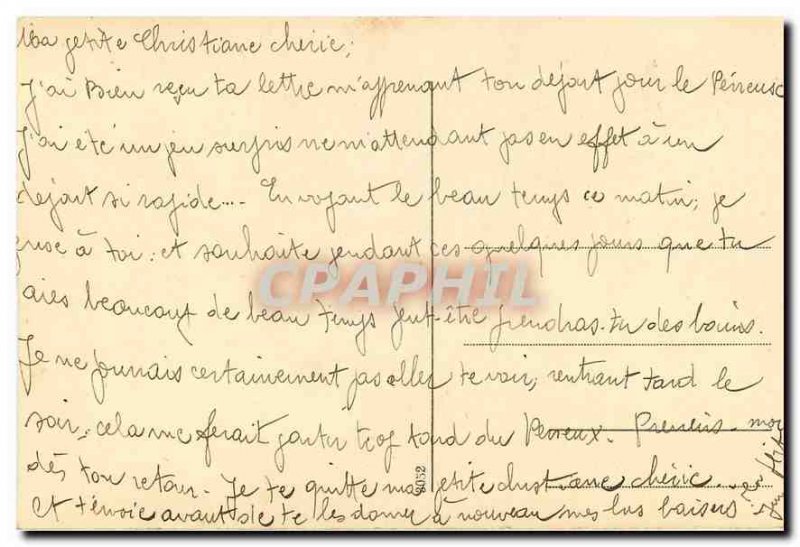 Ma petite Christiane chérie;
J'ai Bien reçu ta lettre m'apprenant ton départ pour le Perreux
J'ai été un peu surpris ne m'attendant pas en effet à un
départ si rapide.... En voyant le beau temps ce matin; je
pense à toi; et souhaite pendant ces quelques jours que tu
aies beaucoup de beau temps peut-être prendras-tu des bains.
CPAPHIL
Je ne pourrais certainement pas aller te voir, rentrant tard le
soir, cela me ferait partir trop tard du Perreux. Préviens-moi
dès ton retour. Je te quitte ma petite christiane chérie
Et t'envoie avant de te les donner à nouveau mes bons baisers
8032